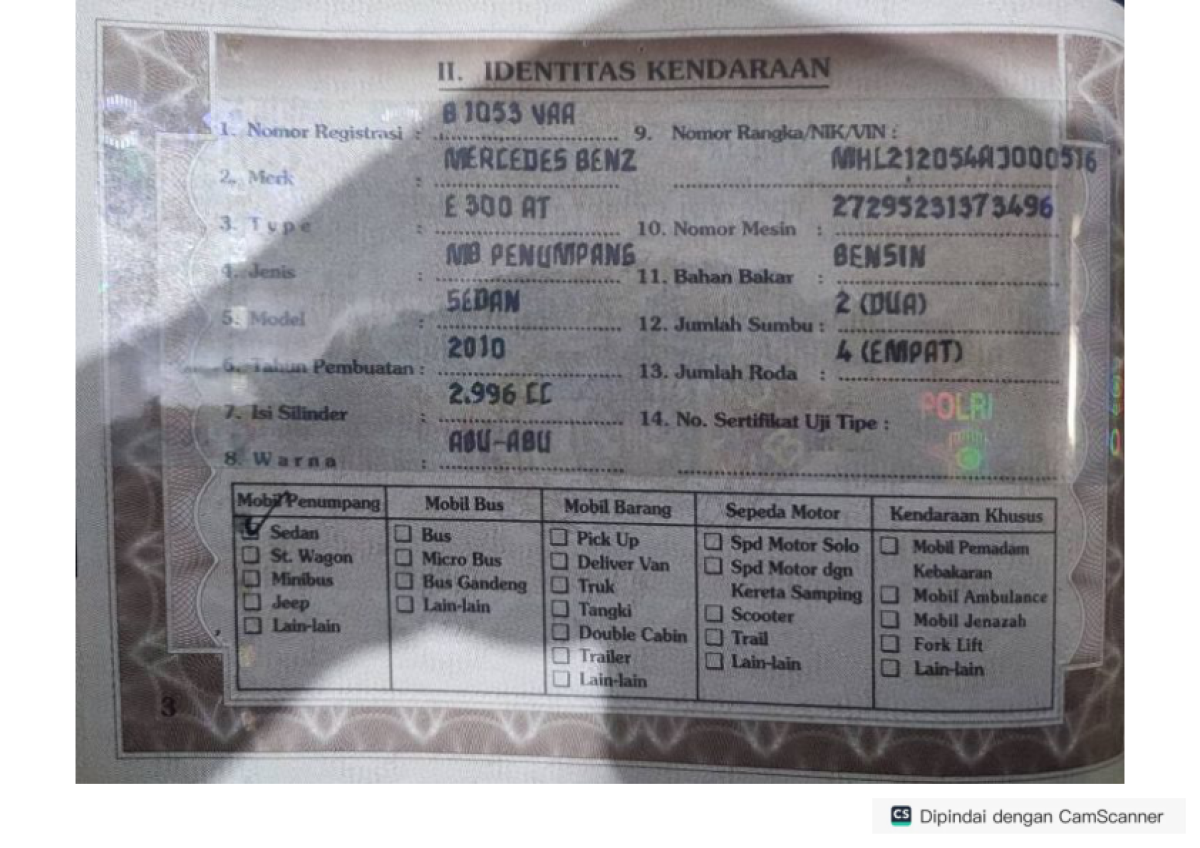 II. IDENTITAS KENDARAAN
1. Nomor Registrasi : B 1053 VAA
2. Merk : MERCEDES BENZ
3. Type : E 300 AT
4. Jenis : MB PENUMPANG
5. Model : SEDAN
6. Tahun Pembuatan : 2010
7. Isi Silinder : 2.996 CC
8. Warna : ABU-ABU
9. Nomor Rangka/NIK/VIN :
MHL212054AJ000516
10. Nomor Mesin : 27295231373496
11. Bahan Bakar : BENSIN
12. Jumlah Sumbu : 2 (DUA)
13. Jumlah Roda : 4 (EMPAT)
14. No. Sertifikat Uji Tipe :
POLRI
Mobil Penumpang
Sedan
St. Wagon
Minibus
Jeep
Lain-lain
Mobil Bus
Bus
Micro Bus
Bus Gandeng
Lain-lain
Mobil Barang
Pick Up
Deliver Van
Truk
Tangki
Double Cabin
Trailer
Lain-lain
Sepeda Motor
Spd Motor Solo
Spd Motor dgn
Kereta Samping
Scooter
Trail
Lain-lain
Kendaraan Khusus
Mobil Pemadam
Kebakaran
Mobil Ambulance
Mobil Jenazah
Fork Lift
Lain-lain
3
CS Dipindai dengan CamScanner